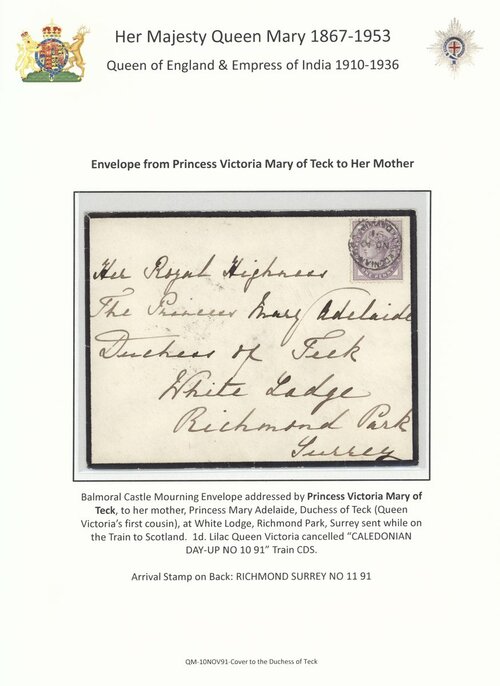 Her Majesty Queen Mary 1867-1953
Queen of England & Empress of India 1910-1936
Envelope from Princess Victoria Mary of Teck to Her Mother
Her Royal Highness
The Princess Mary Adelaide
Duchess of Teck
White Lodge
Richmond Park
Surrey
Balmoral Castle Mourning Envelope addressed by Princess Victoria Mary of
Teck, to her mother, Princess Mary Adelaide, Duchess of Teck (Queen
Victoria's first cousin), at White Lodge, Richmond Park, Surrey sent while on
the Train to Scotland. 1d. Lilac Queen Victoria cancelled "CALEDONIAN
DAY-UP NO 10 91" Train CDS.
Arrival Stamp on Back: RICHMOND SURREY NO 11 91
QM-10NOV91-Cover to the Duchess of Teck